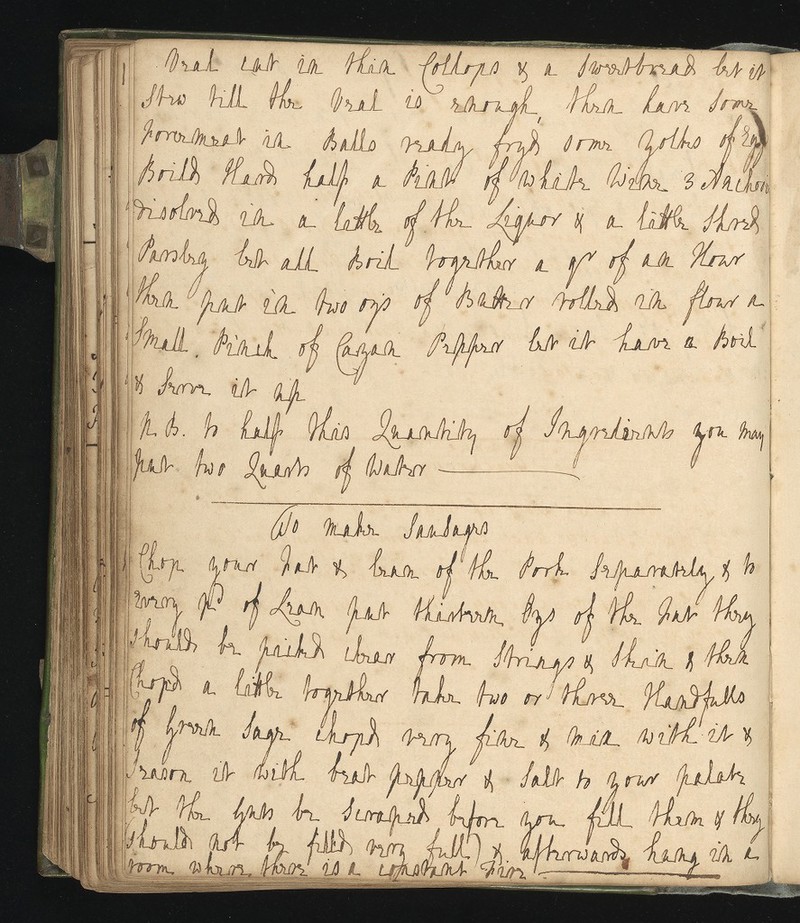 Veal cut in thin Collops & a Sweetbread let it
Stew till the Veal is enough, then have Some
Forcemeat in Balls ready fryd some yolks of Egg
Boild Hard half a Pint of white Wine 3 Anchovi
disolved in a little of the Liquor & a little Shred
Parsley let all Boil together a qr of an Hour
then put in two oz's of Butter rolled in flour a
Small Pinch of Cayan Pepper let it have a Boil
& Serve it up
N.B. to half this Quantity of Ingredients you may
put two Quarts of Water
To make Sausages
Chop your Fat & lean of the Pork Separately & to
every pd of Lean put thirteen Ozs of the Fat they
should be picked clear from Strings & Skin & then
Chopd a little together take two or three Handfulls
of Green Sage chopd very fine & mix with it &
Season it with beat pepper & Salt to your palate
let the Guts be Scraped before you fill them & they
should not be filled very full) & afterwards hang in a
room where there is a constant Fire